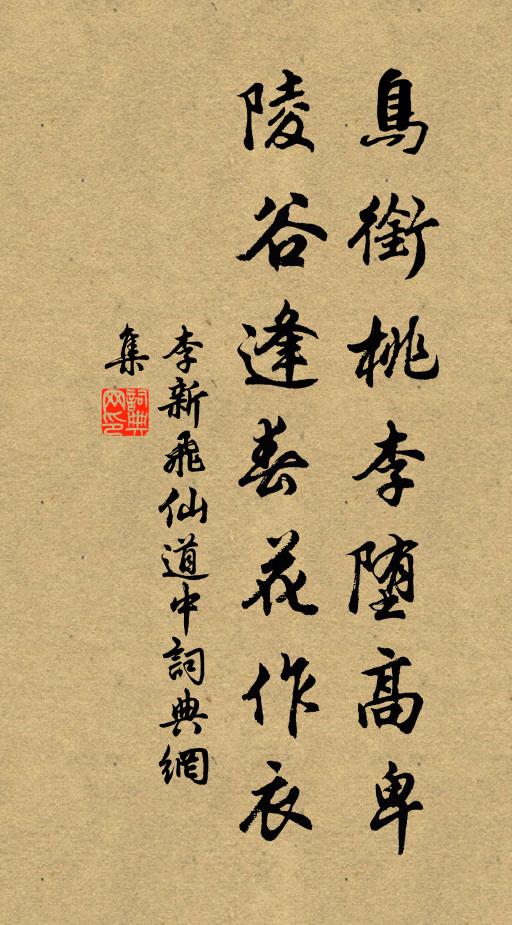 鳥銜桃李堕高卑
陵谷逢春花作衣
李新飛仙道中詞典網
集
詞典
網印